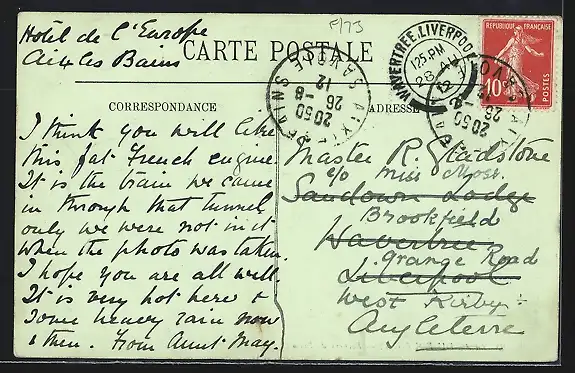 Hotel de l'Europe
Aix les Bains
F/73
CARTE POSTALE
CORRESPONDANCE
ADRESSE
I think you will like
this fat French engine
It is the train we came
in through that tunnel
only we were not in it
when the photo was taken.
I hope you are all well.
It is very hot here &
some heavy rain now
& then. From Aunt May.
AIX-LES-BAINS
SAVOIE
20 50
26 -8
12
WAVERTREE, LIVERPOOL
1 25 PM
28 AU
12
AIX-LES-BAINS
SAVOIE
20 50
26 -8
REPUBLIQUE FRANÇAISE
10
POSTES
Master R. Gladstone
c/o Miss Moss.
Sandown Lodge
Brookfield
Wavertree
Grange Road
Liverpool
West Kirby
Angleterre